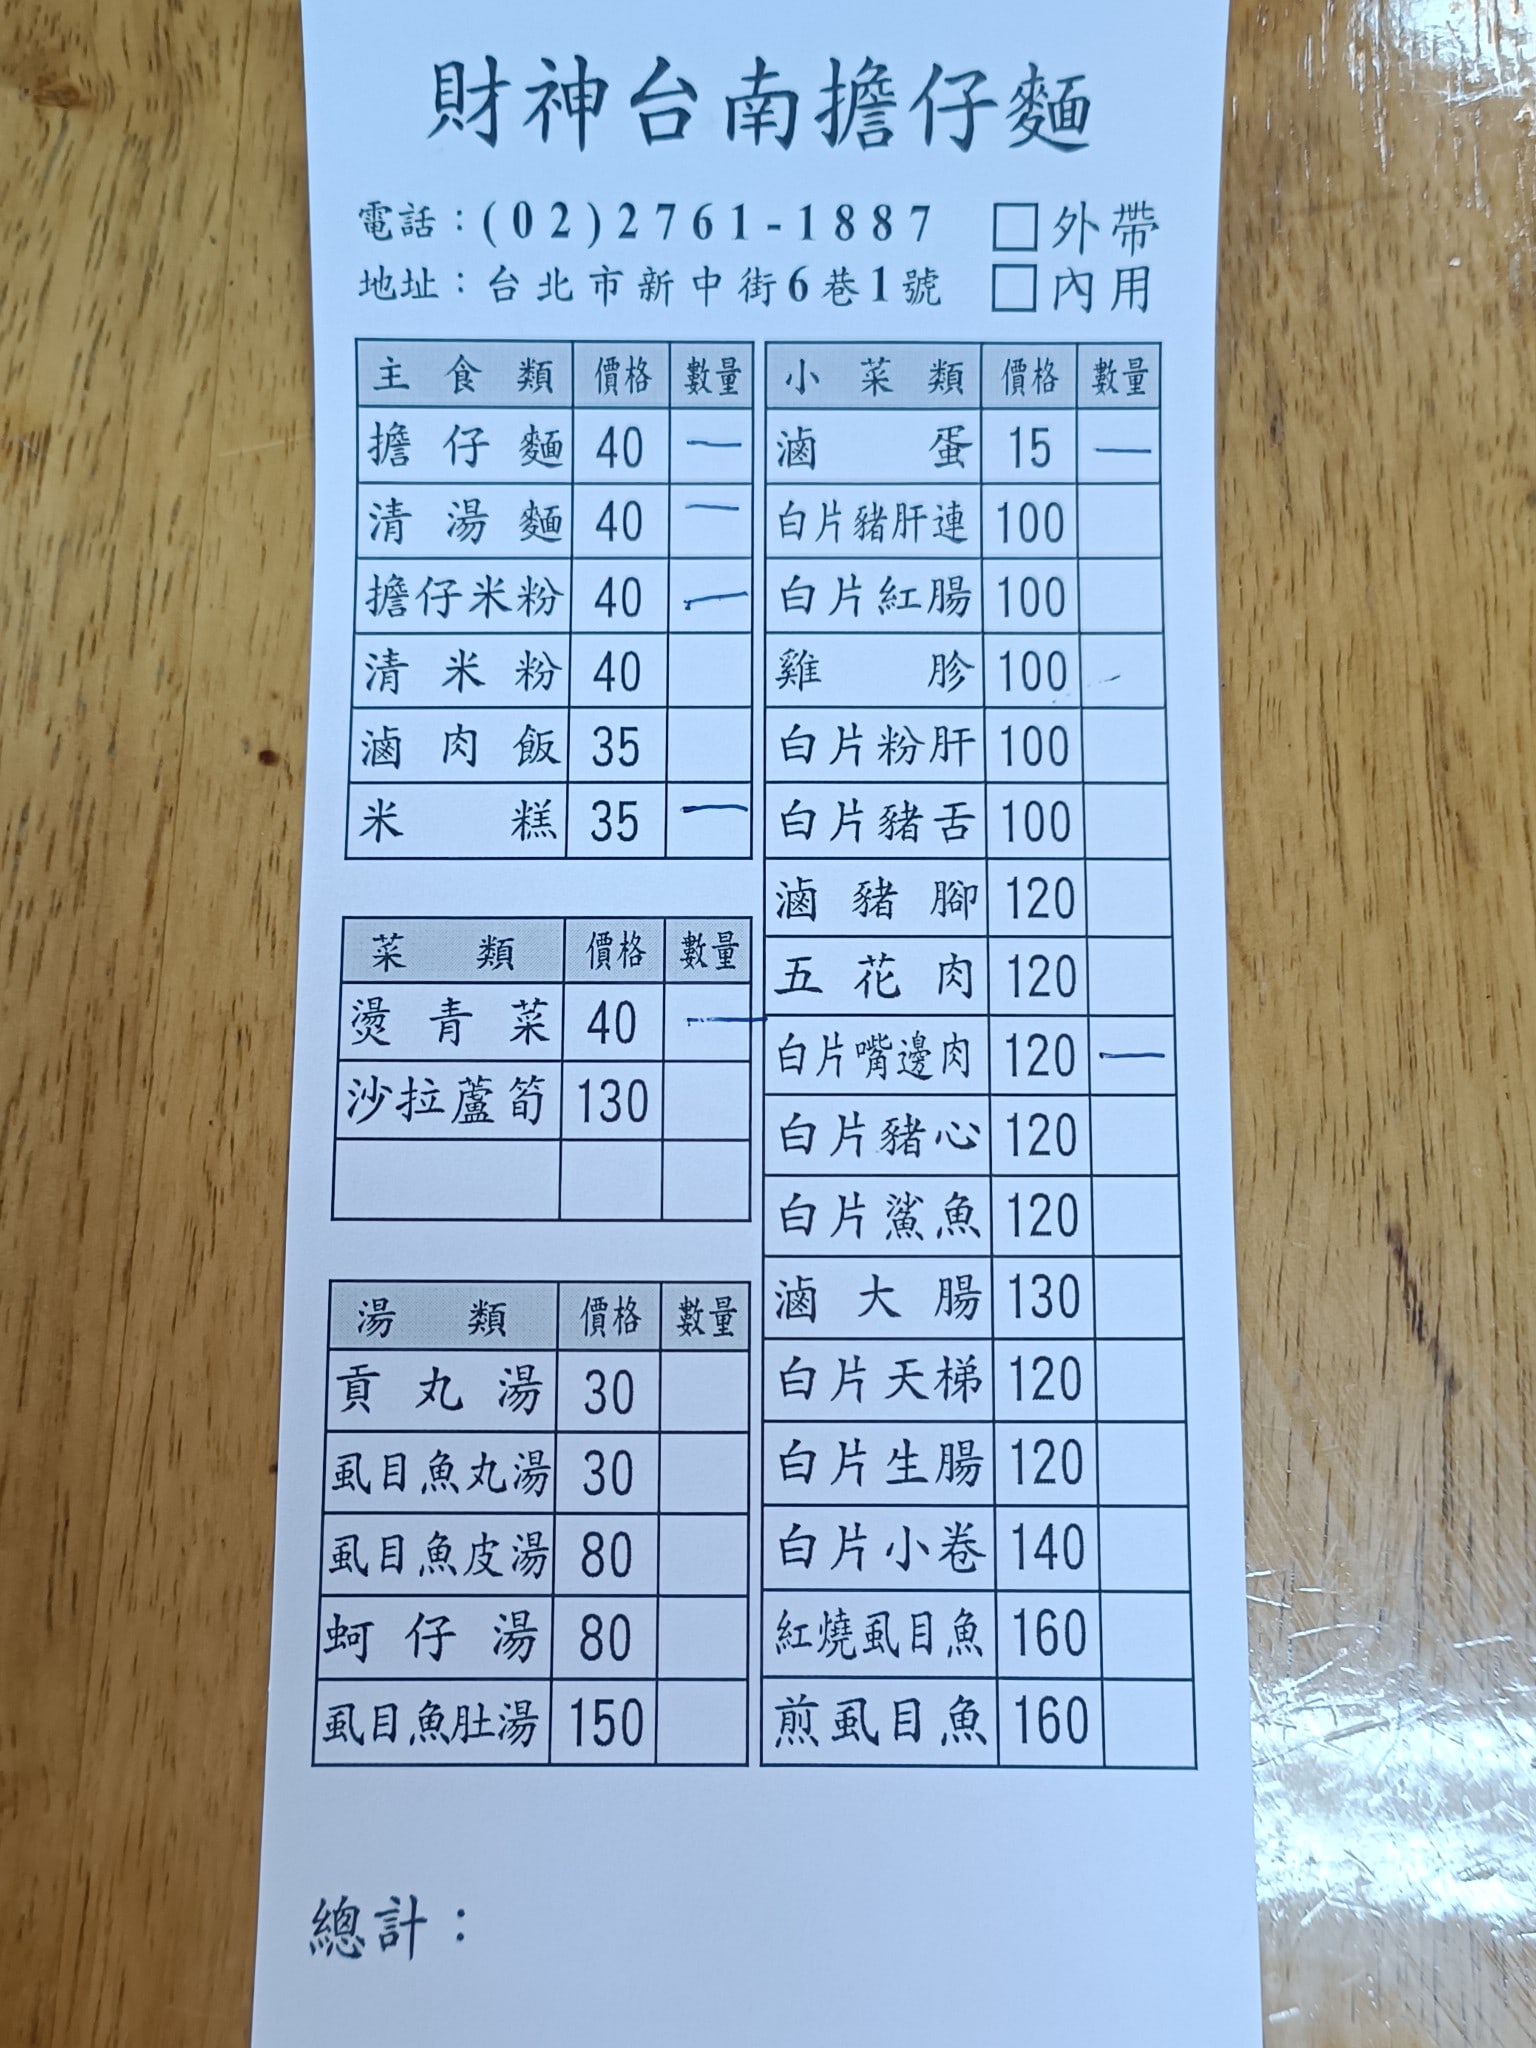 財神台南擔仔麵
電話：(02)2761-1887 □外帶
地址：台北市新中街6巷1號 □內用
主食類 價格 數量
擔仔麵 40 一
清湯麵 40 一
擔仔米粉 40 一
清米粉 40
滷肉飯 35
米糕 35 一
菜類 價格 數量
燙青菜 40 一
沙拉蘆筍 130
湯類 價格 數量
貢丸湯 30
虱目魚丸湯 30
虱目魚皮湯 80
蚵仔湯 80
虱目魚肚湯 150
小菜類 價格 數量
滷蛋 15 一
白片豬肝連 100
白片紅腸 100
雞胗 100
白片粉肝 100
白片豬舌 100
滷豬腳 120
五花肉 120
白片嘴邊肉 120 一
白片豬心 120
白片鯊魚 120
滷大腸 130
白片天梯 120
白片生腸 120
白片小卷 140
紅燒虱目魚 160
煎虱目魚 160
總計：